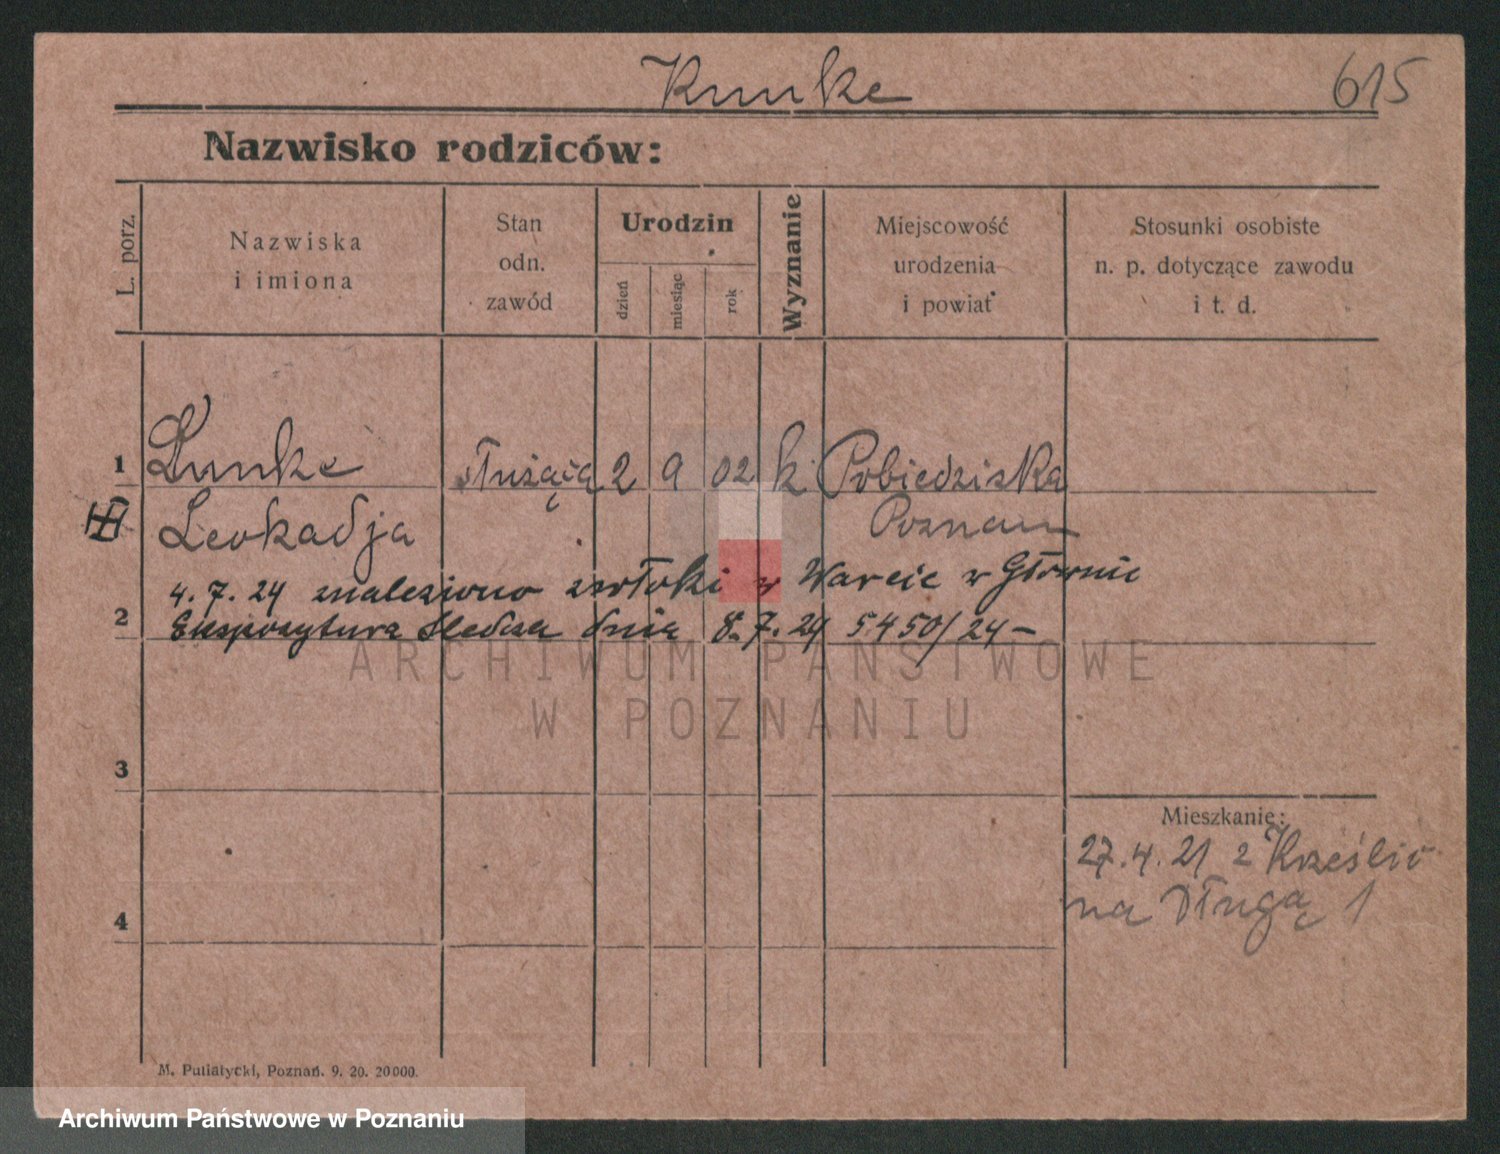 Kunke 615
Nazwisko rodziców:
L. porz.
Nazwiska
i imiona
Stan
odn.
zawód
Urodzin
dzień
miesiąc
rok
Wyznanie
Miejscowość
urodzenia
i powiat
Stosunki osobiste
n. p. dotyczące zawodu
i t. d.
1 Kunke służąca 2 9 02 k Pobiedziska
Leokadja Poznań
4. 7. 24 znaleziono zwłoki w Warcie w Głównie
2 Ekspozytura Śledcza dnia 8. 7. 24 5450/24 -
ARCHIWUM PAŃSTWOWE
W POZNANIU
3
Mieszkanie:
27. 4. 21 z
4 na Długą 1
M. Putiatycki, Poznań. 9. 20. 20000.
Archiwum Państwowe w Poznaniu